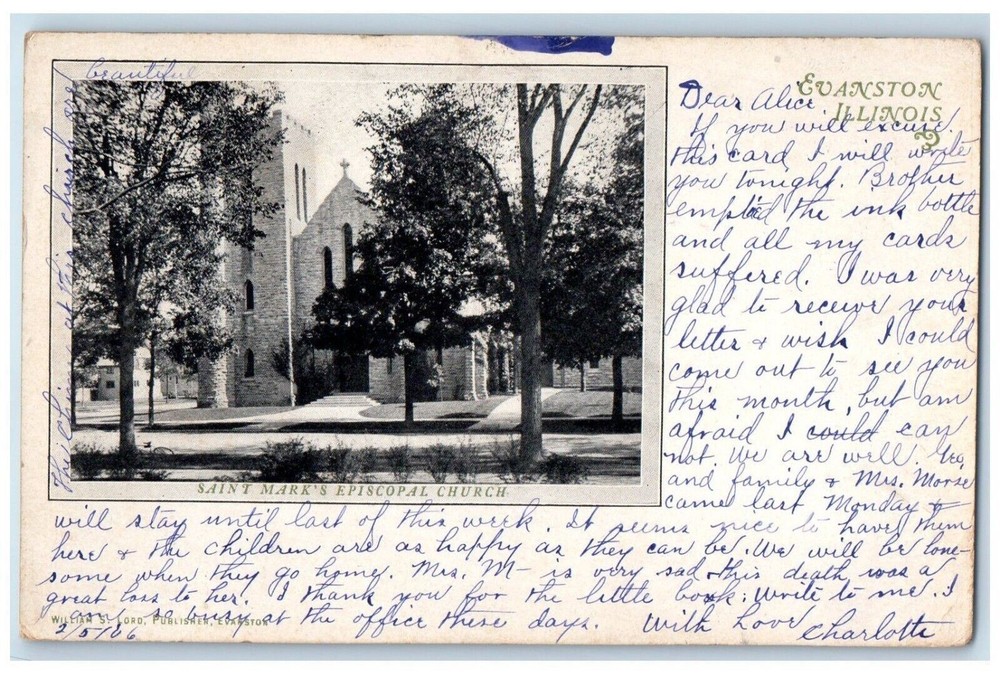 Evanston
Illinois
Dear Alice,
If you will excuse
this card I will write
you tonight. Brother
emptied the ink bottle
and all my cards
suffered. I was very
glad to receive your
letter & wish I could
come out to see you
this month, but am
afraid I could can
not. We are well. Geo,
and family & Mrs. Morse
came last Monday &
will stay until last of this week. It seems nice to have them
here & the children are as happy as they can be. We will be lone-
some when they go home. Mrs. M- is very sad & this death was a
great loss to her. I thank you for the little book. Write to me. I
am so busy at the office these days. With Love
Charlotte
2/5/06
The chimes at this church are
beautiful
Saint Mark's Episcopal Church
William S. Lord, Publisher, Evanston